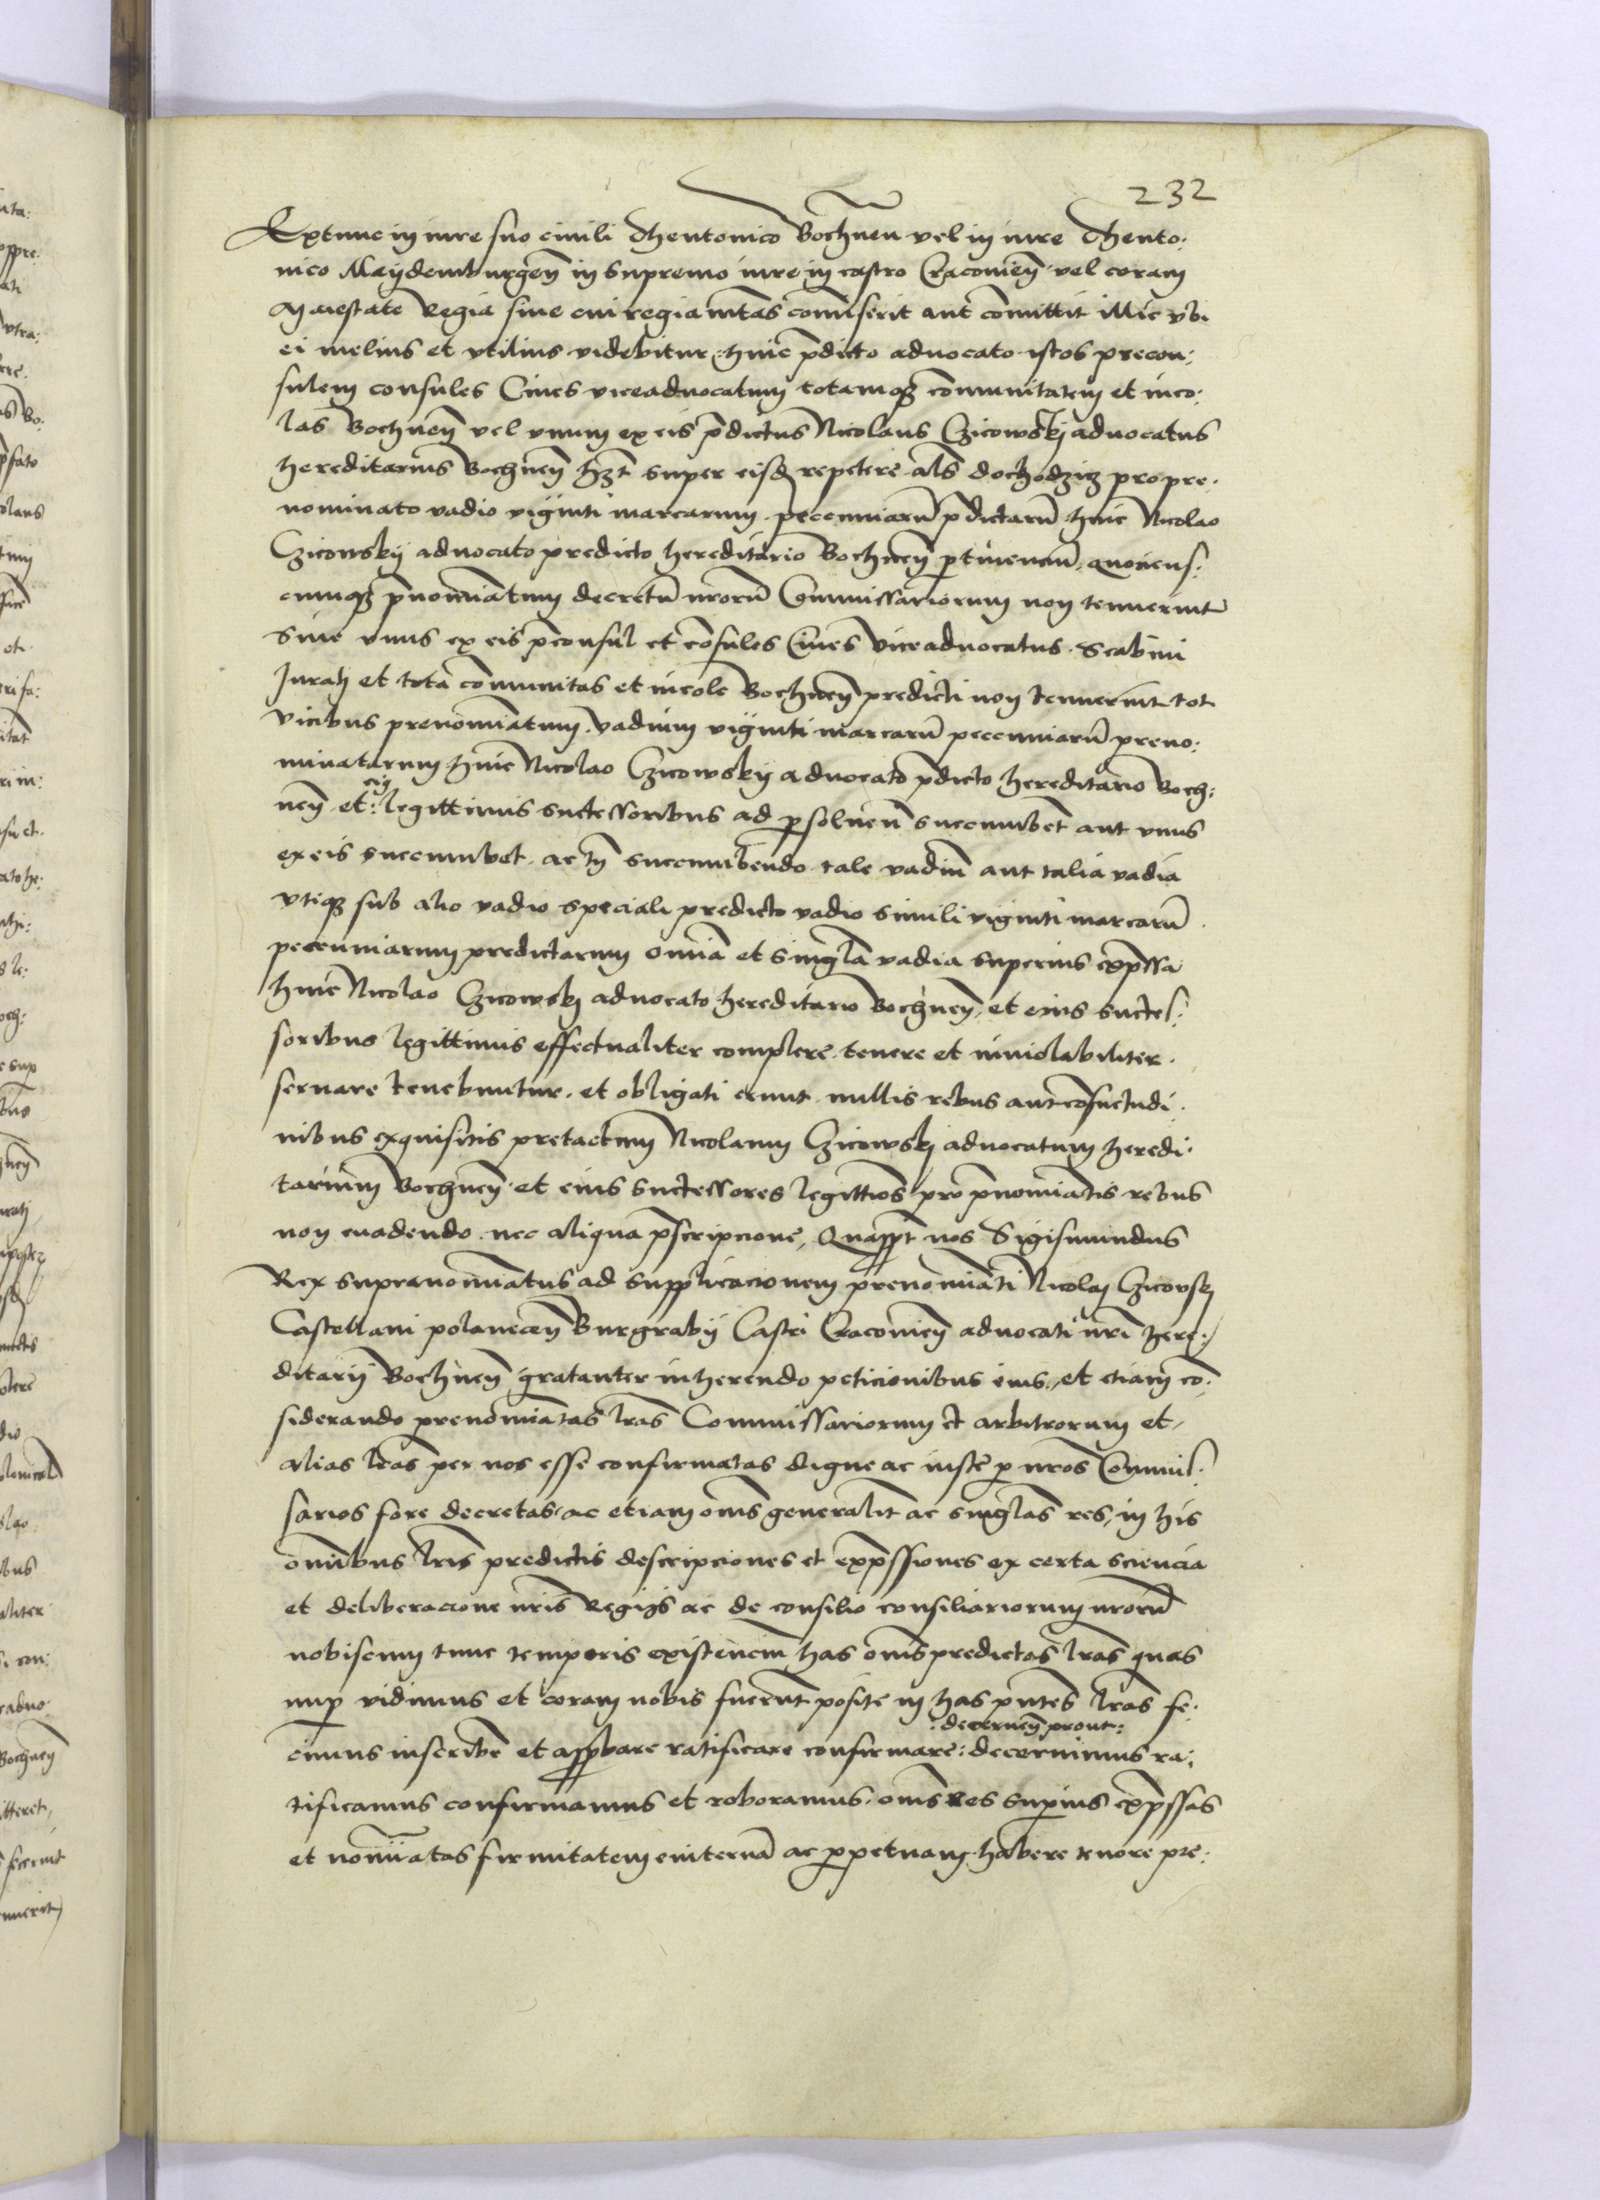 232
Extunc in iure suo civili Thentonico Bochnen vel in iure Thento:
nico Maydemburgen in supremo iure in castro Cracovien vel coram
Maiestate Regia sive cui regia mtas comiserit aut comittit illic ubi
ei melius et utilius videbitur, huic pdicto advocato istos precon:
sulem consules Cives viceadvocatum totamq3 comunitatem et inco:
las Bochnen vel unum ex eis pdictus Nicolaus Czicowskj advocatus
hereditarius Bochnen h3t super eisd repetere als dochodzicz pro pre:
nominato vadio viginti marcarum pecuniaru pdictaru huic Nicolao
Czicowskij advocato predicto hereditario Bochnen ptinenciu, quociens:
cumq3 pnominatum decretu nroru Commissariorum non tenuerint
Sive unus ex eis pconsul et cosules Cives viceadvocatus Scabini
Juratj et tota comunitas et incole Bochnen predicti non tenuerint tot
vicibus prenominatum vadium viginti marcaru pecuniaru preno:
minatarum huic Nicolao Czicowskij advocato pdicto hereditario Boch:
nen et: eius legittimis successoribus ad psolven succumbet aut unus
ex eis succumbet ac in succumbendo tale vadiu aut talia vadia
utiq3 sub alio vadio speciali predicto vadio simili viginti marcaru
pecuniarum predictarum omia et singla vadia superius expssa
huic Nicolao Czicowskj advocato hereditario Bochnen, et eius succes:
soribus legittimis effectualiter complere tenere et inviolabiliter
servare tenebuntur et obligati erunt nullis rebus aut cosuetudi:
nibus exquisitis pretactum Nicolaum Czicowskj advocatum heredi:
tarium Bochnen et eius successores legittios pro pnominatis rebus
non evadendo nec aliqua pscripcione, Quappt nos Sigismundus
Rex supranominatus ad supplicacionem prenominati Nicolaj Czicovskj
Castellani polanecen Burgrabij Castri Cracovien advocati nri here:
ditarij Bochnen gratanter inherendo peticionibus eius, et etiam co:
siderando prenominatas lras Commissariorum et arbitrorum et
alias lras per nos esse confirmatas digne ac iuste p nros Commis:
sarios fore decretas, ac etiam oms generalit ac singlas res, in his
omibus lris predictis descripciones et expssiones ex certa sciencia
et deliberacione nris Regijs ac de consilio consiliariorum nroru
nobiscum tunc temporis existencium has oms predictas lras quas
nup vidimus et coram nobis fuerunt posite in has pntes lras fe:
:decernen prout:
cimus inscribe et approbare ratificare confirmare: decernimus ra:
tificamus confirmamus et roboramus oms res supius expssas
et nominatas firmitatem eviterna ac ppetuam habere tenore pre: